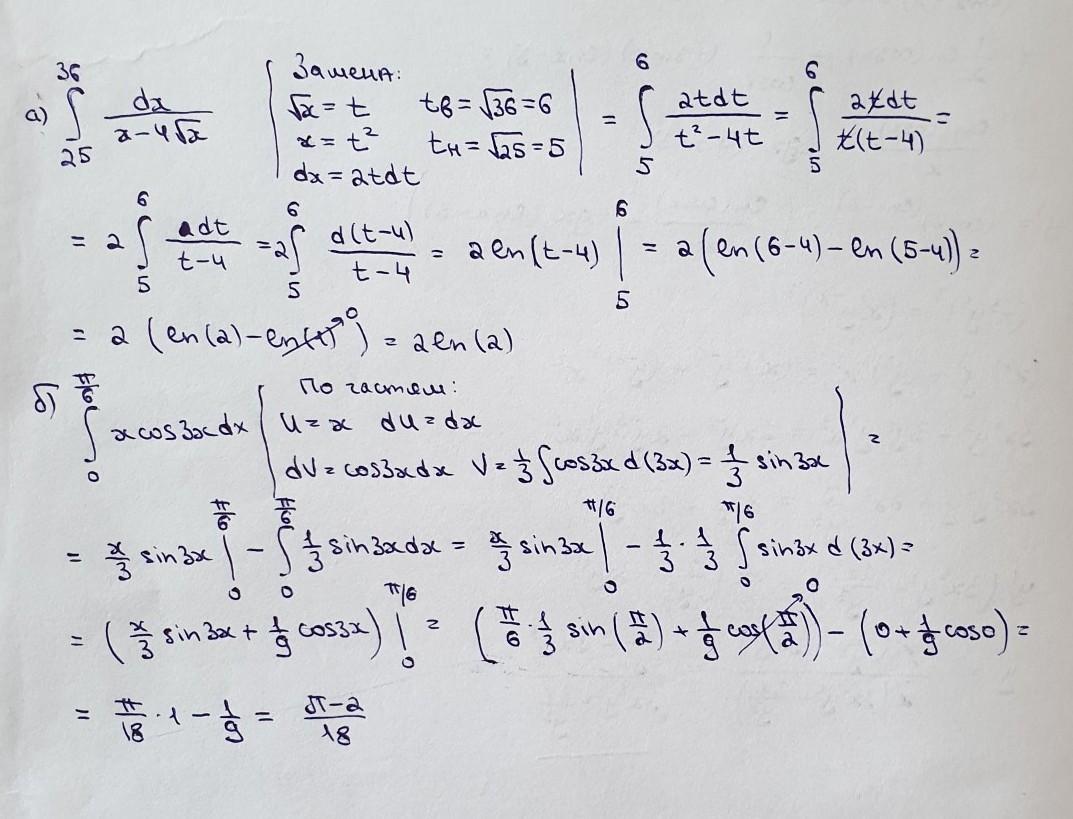 а) ∫₂₅³⁶ dx/(x−4√x) | Замена: √x = t tв = √36 = 6 x = t² tн = √25 = 5 dx = 2tdt | = ∫₅⁶ 2tdt/(t²−4t) = ∫₅⁶ 2tdt/(t(t−4)) =
= 2 ∫₅⁶ dt/(t−4) = 2∫₅⁶ d(t−4)/(t−4) = 2 ln(t−4) |₅⁶ = 2(ln(6−4) − ln(5−4)) =
= 2 (ln(2) − ln(1)→0) = 2ln(2)
б) ∫₀^(π/6) x cos3x dx | По частям: u = x du = dx dV = cos3x dx V = 1/3 ∫cos3x d(3x) = 1/3 sin3x | =
= x/3 sin3x |₀^(π/6) − ∫₀^(π/6) 1/3 sin3x dx = x/3 sin3x |₀^(π/6) − 1/3 · 1/3 ∫₀^(π/6) sin3x d(3x) =
= (x/3 sin3x + 1/9 cos3x) |₀^(π/6) = (π/6 · 1/3 sin(π/2) + 1/9 cos(π/2)→0) − (0 + 1/9 cos0) =
= π/18 · 1 − 1/9 = (π−2)/18